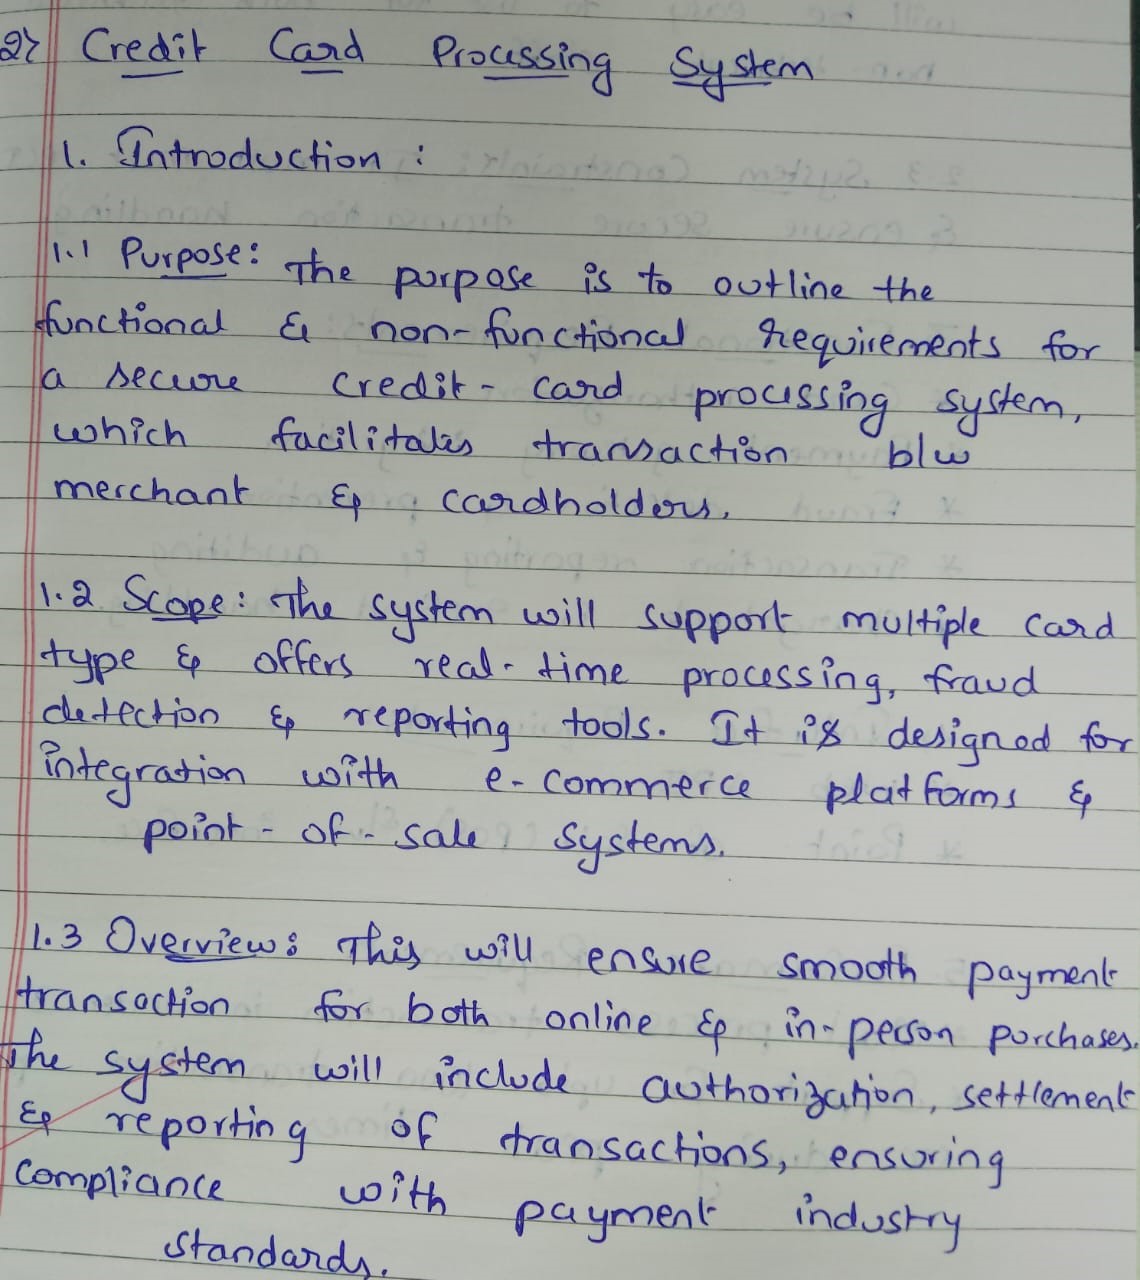 2) Credit Card Processing System
1. Introduction :
1.1 Purpose: The purpose is to outline the
functional & non-functional requirements for
a secure credit-card processing system,
which facilitates transaction b/w
merchant & cardholders.
1.2 Scope: The system will support multiple card
type & offers real-time processing, fraud
detection & reporting tools. It is designed for
integration with e-commerce platforms &
point-of-sale systems.
1.3 Overview: This will ensure smooth payment
transaction for both online & in-person purchases.
The system will include authorization, settlement
& reporting of transactions, ensuring
compliance with payment industry
standards.